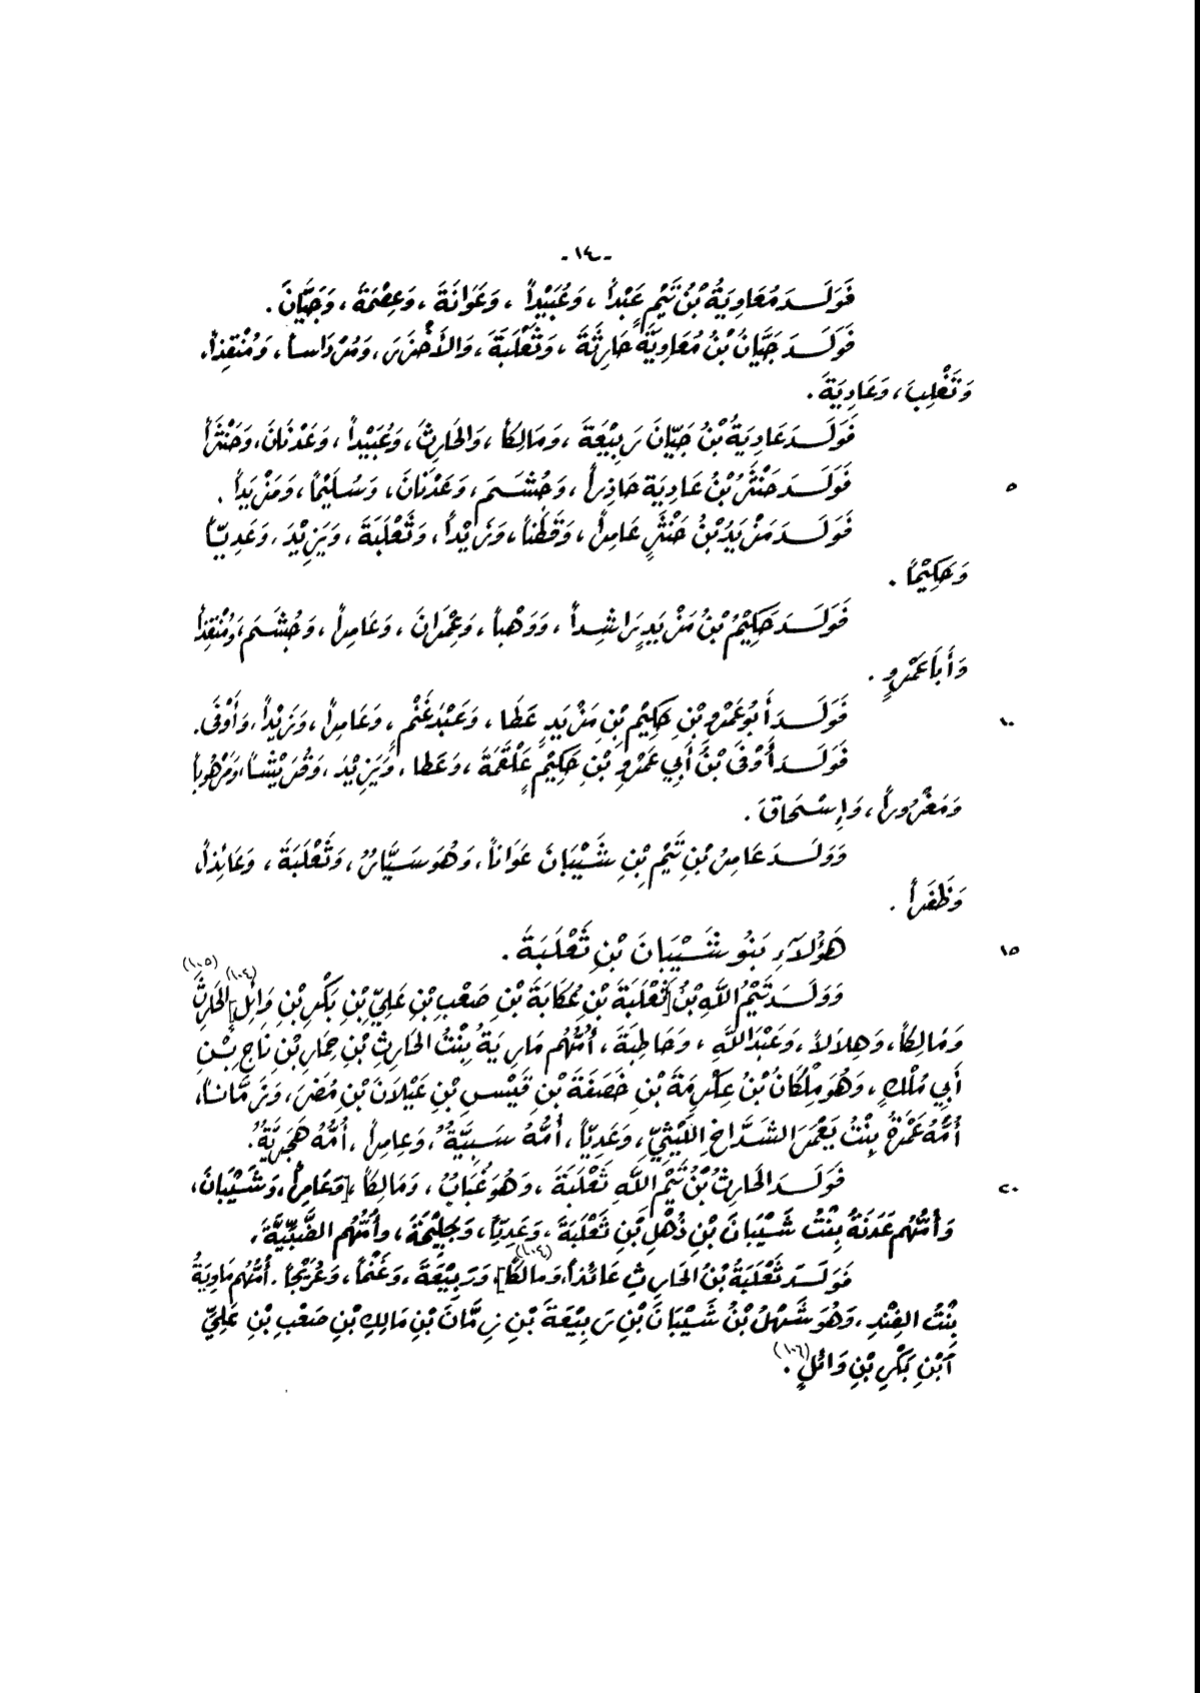 -١٤-
فَوَلَـدَ مُعَاوِيَةُ بْنُ تَيْمٍ عَبْداً ، وَعُبَيْداً ، وَعَوَانَةَ ، وَعِصْمَةَ ، وَحَيَّانَ .
فَوَلَـدَ حَيَّانُ بْنُ مُعَاوِيَةَ حَارِثَةَ ، وَثَعْلَبَةَ ، وَالأَخْنَسَ ، وَمِرْدَاساً ، وَمُنْقِذاً،
وَتَغْلِبَ ، وَعَادِيَةَ .
فَوَلَـدَ عَادِيَةُ بْنُ حَيَّانَ رَبِيْعَةَ ، وَمَالِكاً ، وَالحَارِثَ ، وَعُبَيْداً ، وَعَدْنَانَ، وَحَنْثَراً
٥ فَوَلَـدَ حَنْثَرُ بْنُ عَادِيَةَ حَاذِراً ، وَجُشَـمَ ، وَعَدْنَانَ ، وَسُلَيْماً ، وَمَزْيَداً .
فَوَلَـدَ مَزْيَدُ بْنُ حَنْثَرٍ عَامِراً ، وَقَطَناً ، وَزَيْداً ، وَثَعْلَبَةَ ، وَيَزِيْدَ ، وَعَدِيّاً
وَحَكِيْماً .
فَوَلَـدَ حَكِيْمُ بْنُ مَزْيَدٍ رَاشِـداً ، وَوَهْباً ، وَعِمْرَانَ ، وَعَامِراً ، وَجُشَـمَ، وَمُنْقِذاً
وَأَبَا عَمْرٍو .
١٠ فَوَلَـدَ أَبُو عَمْرِو بْنِ حَكِيْمِ بْنِ مَزْيَدٍ عَطَا ، وَعَبْدَ غَنْمٍ ، وَعَامِراً ، وَزَيْداً ، وَأَوْفَى.
فَوَلَـدَ أَوْفَى بْنُ أَبِي عَمْرِو بْنِ حَكِيْمٍ عَلْقَمَةَ ، وَعَطَا ، وَيَزِيْدَ ، وَقُرَيْشـاً ، وَمَرْهُوباً
وَمَغْرُوراً ، وَإِسْـحَاقَ .
وَوَلَـدَ عَامِرُ بْنِ تَيْمِ بْنِ شَـيْبَانَ عَوَاناً ، وَهُوَ سَـيَّارٌ ، وَثَعْلَبَةَ ، وَعَائِذاً،
وَظَفَراً .
١٥ هَؤُلَاءِ بَنُو شَـيْبَانَ بْنِ ثَعْلَبَةَ .
وَوَلَـدَ تَيْمُ اللَّهِ بْنُ [ثَعْلَبَةَ بْنِ عُكَابَةَ بْنِ صَعْبِ بْنِ عَلِيِّ بْنِ بَكْرِ بْنِ وَائِلٍ](١٠٤) الحَارِثَ(١٠٥)
وَمَالِكاً ، وَهِلاَلاً ، وَعَبْدَ اللَّهِ ، وَحَاطِبَةَ ، أُمُّهُم مَارِيَةُ بِنْتُ الحَارِثِ بْنِ حِمَارِ بْنِ نَاجِ بْـنِ
أَبِي مُلْكٍ ، وَهُوَ مِلْكَانُ بْنُ عِكْرِمَةَ بْنِ خَصَفَةَ بْنِ قَيْـسِ بْنِ عَيْلَانَ بْنِ مُضَرَ ، وَزِمَّاناً ،
أُمُّهُ عَمْرَةُ بِنْتُ يَعْمَرَ الشَـدَّاخِ اللَّيْثِيِّ ، وَعَدِيّاً ، أُمُّهُ سَـبِيَّةٌ ، وَعَامِراً ، أُمُّهُ هَجَرِيَّةٌ.
٢٠ فَوَلَـدَ الحَارِثُ بْنُ تَيْمِ اللَّهِ ثَعْلَبَةَ ، وَهُوَ عُبَابٌ ، وَمَالِكاً ، [وَعَامِراً ، وَشَـيْبَانَ ،
وَأُمُّهُم عَدَنَةُ بِنْتُ شَـيْبَانَ بْنِ ذُهْلِ بْنِ ثَعْلَبَةَ ، وَعَدِيّاً ، وَجُلَيْحَةَ ، وأُمُّهُم الضَّبِّيَّةُ ،
فَوَلَـدَ ثَعْلَبَةُ بْنُ الحَارِثِ عَائِذاً ، وَمالِكاً](١٠٤) ، وَرَبِيْعَةَ ، وَغَنْماً ، وَعُرَيْجاً . أُمُّهُم مَاوِيَةُ
بِنْتُ الفِنْدِ ، وَهُوَ شَـهْلُ بْنُ شَـيْبَانَ بْنِ رَبِيْعَةَ بْنِ زِمَّانَ بْنِ مَالِكِ بْنِ صَعْبِ بْنِ عَلِيِّ
اَبْنِ بَكْرِ بْنِ وَائِلٍ(١٠٦) .